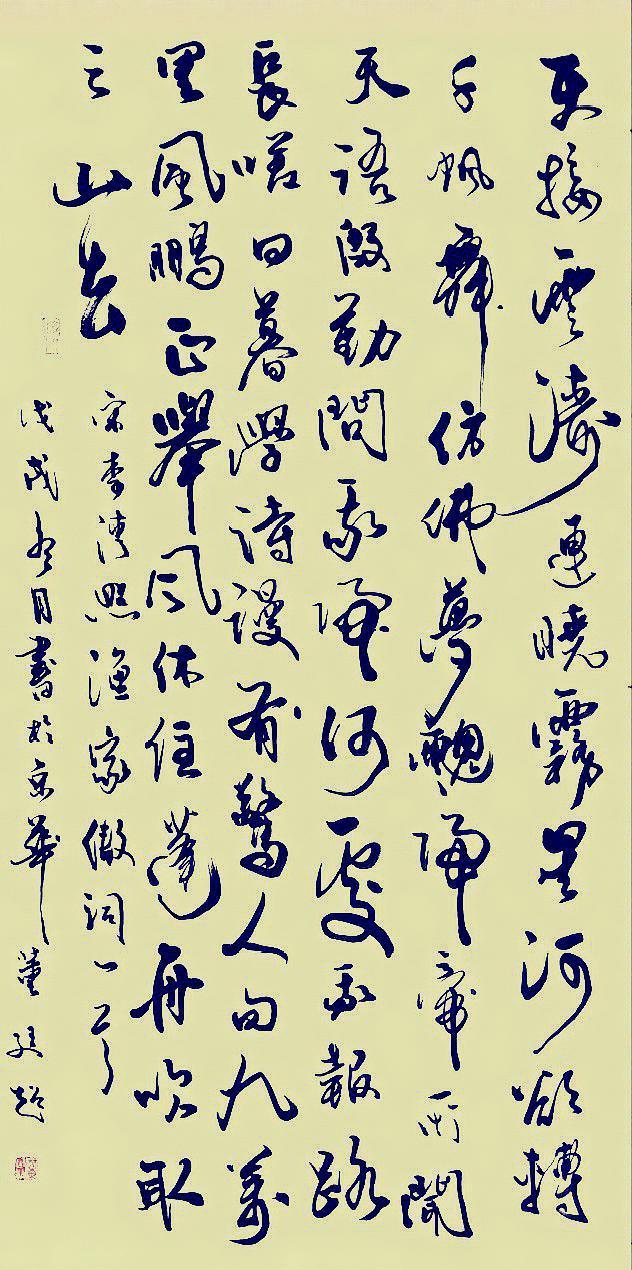 天接雲濤連曉霧星河欲轉
千帆舞仿佛夢魂歸帝所聞
天語殷勤問我歸何處我報路
長嗟日暮學詩謾有驚人句九萬
里風鵬正舉風休住蓬舟吹取
三山去
宋李清照漁家傲詞一首
戊戌冬月書於京華 董 超